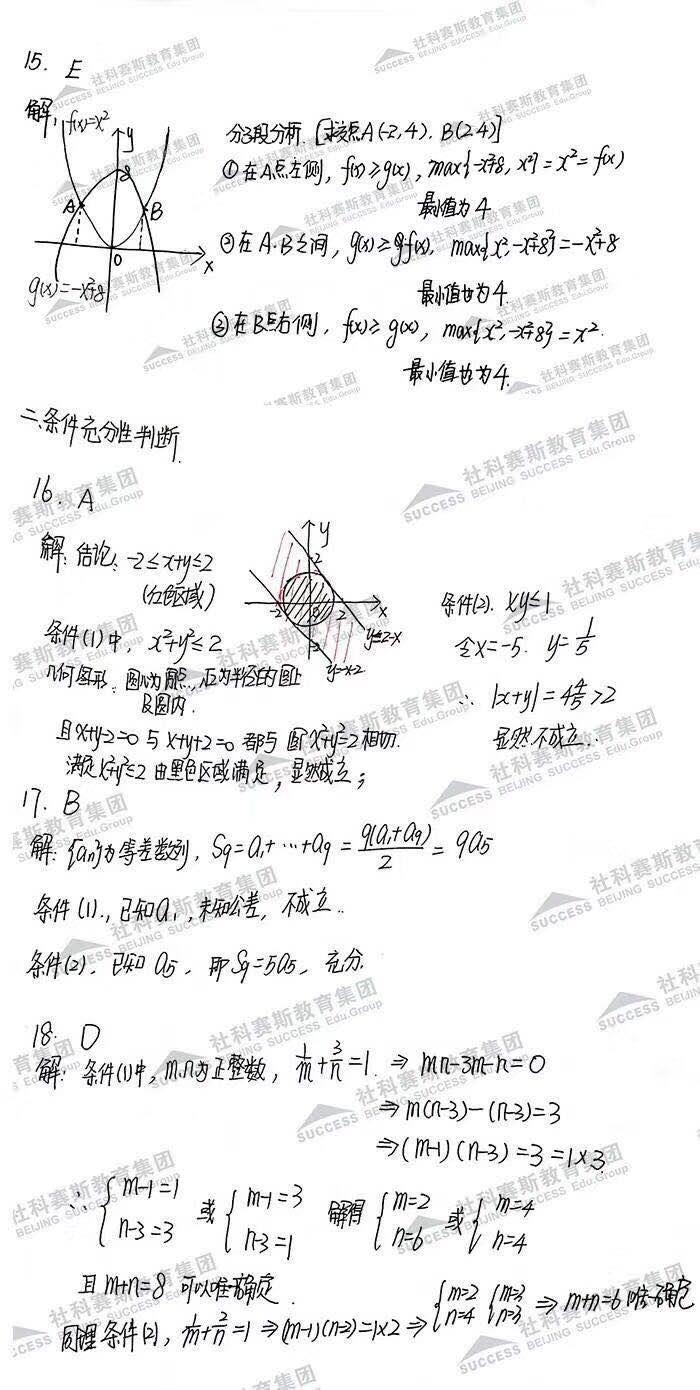 15. E
解:
f(x)=x²
y
8
A
B
0
x
g(x)=-x²+8
分段分析. [求交点A(-2,4). B(2,4)]
① 在A点左侧, f(x)≥g(x), max{-x²+8, x²}=x²=f(x)
最值为4
② 在A.B之间, g(x)≥f(x), max{x²,-x²+8}=-x²+8
最小值也为4.
③ 在B点右侧, f(x)≥g(x), max{x²,-x²+8}=x².
最小值也为4.
二、条件充分性判断.
16. A
解: 结论: -2≤x+y≤2
(红色区域)
y
2
-2
0
2
x
-2
y=2-x
y=-x-2
条件(1)中, x²+y²≤2
几何图形: 圆心为原点, √2为半径的圆上
及圆内.
且x+y-2=0与x+y+2=0都与圆x²+y²=2相切.
满足x²+y²≤2由黑色区域满足, 显然成立;
条件(2). xy≤1
令x=-5. y=1/5
∴ |x+y|=4 4/5>2
显然不成立.
17. B
解: {an}为等差数列, S9=a1+…+a9=9(a1+a9)/2=9a5
条件(1)., 已知a1, 未知公差, 不成立..
条件(2). 已知a5, 即S9=5a5, 充分.
18. D
解: 条件(1)中, m.n为正整数, 1/m+3/n=1. ⇒ mn-3m-n=0
⇒ m(n-3)-(n-3)=3
⇒ (m-1)(n-3)=3=1×3.
∴ {m-1=1 n-3=3 或 {m-1=3 n-3=1 解得 {m=2 n=6 或 {m=4 n=4
且m+n=8 可以唯一确定.
同理条件(2), 1/m+2/n=1 ⇒ (m-1)(n-2)=1×2 ⇒ {m=2 n=4 {m=3 n=3 ⇒ m+n=6 唯一确定
社科赛斯教育集团
SUCCESS BEIJING SUCCESS Edu.Group